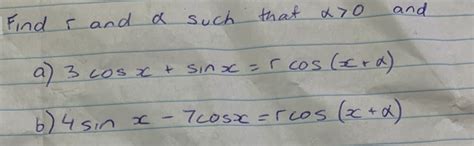 Find r and α such that α>0 and
a) 3 cos x + sin x = r cos (x + α)
b) 4 sin x - 7cosx = rcos (x + α)